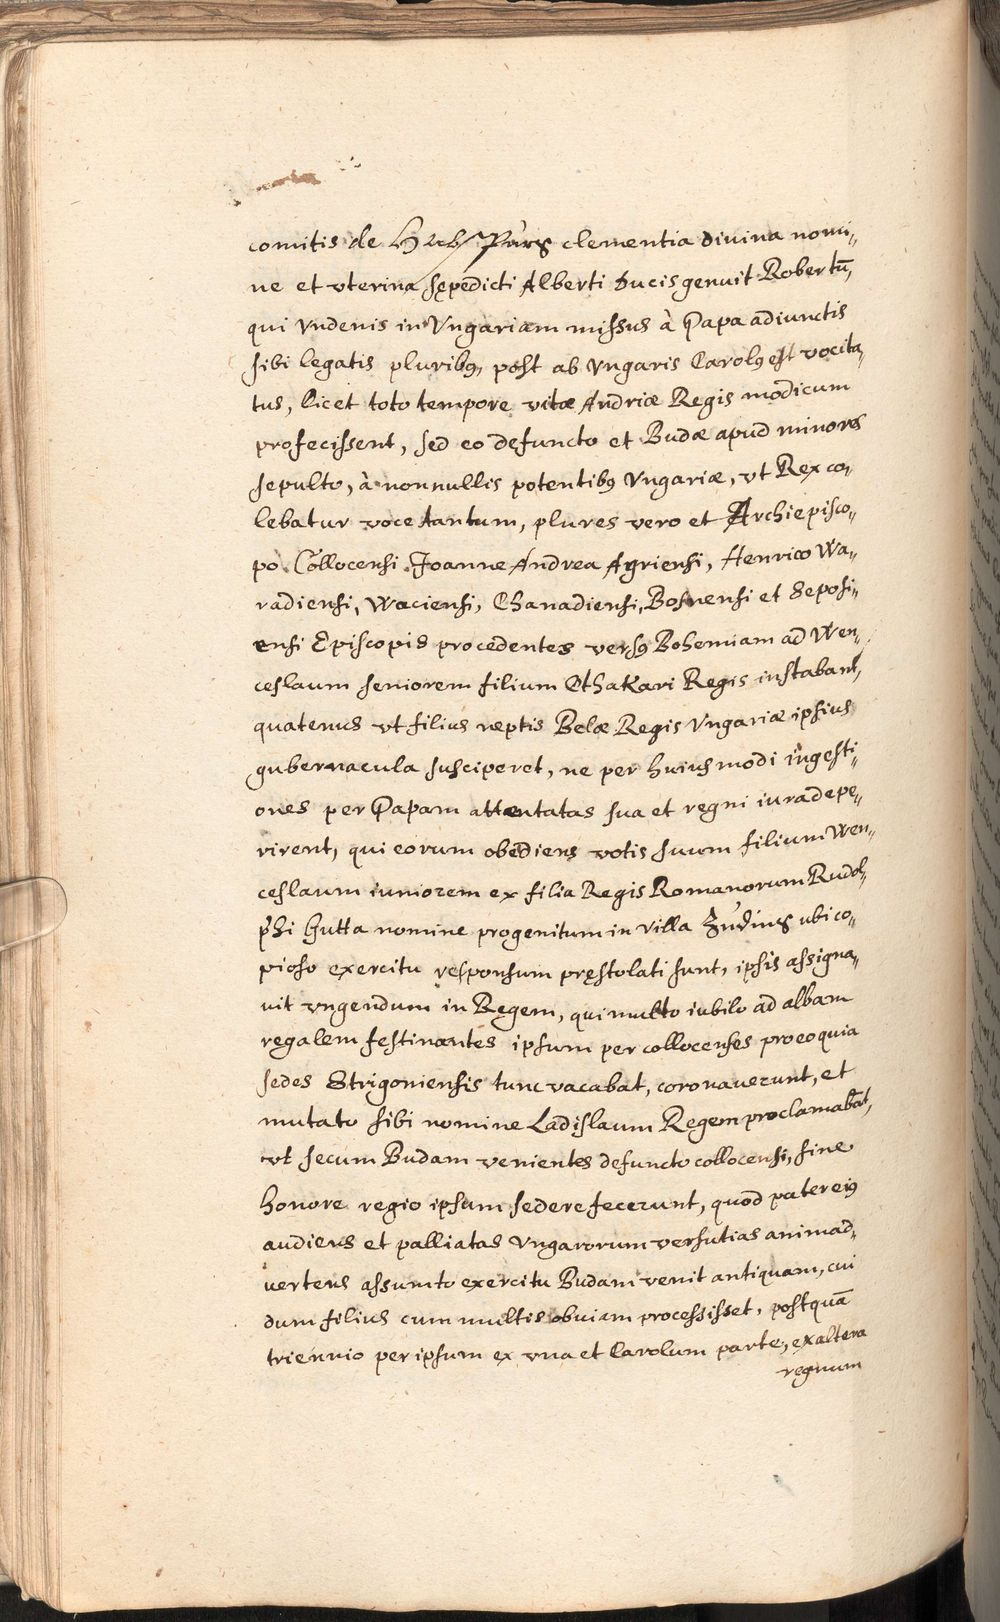 comitis de Habspurg clementia divina nomi„
ne et vterina sępedicti Alberti Ducis genuit Robertū,
qui vndenis in Vngariam missus à Papa adiunctis
sibi legatis pluribꝰ, post ab Vngaris Carolꝰ est vocita„
tus, licet toto tempore vitæ Andriæ Regis modicum
profecissent, sed eo defuncto et Budæ apud minores
sepulto, à nonnullis potentibꝰ Vngariæ, vt Rex co„
lebatur voce tantum, plures vero et Archiepisco„
po Collocensi Joanne Andrea Agriensi, Henrico Wa„
radiensi, Waciensi, Chanadiensi, Bosnensi et Seposi„
ensi Episcopis procedentes versꝰ Bohemiam ad Wen„
ceslaum seniorem filium Othakari Regis instabant,
quatenus vt filius neptis Belæ Regis Vngariæ ipsius
gubernacula susciperet, ne per huiusmodi ingesti„
ones per Papam attentatas sua et regni iura depe„
rirent, qui eorum obediens votis suum filium Wen„
ceslaum iuniorem ex filia Regis Romanorum Rudol„
phi Gutta nomine progenitum in villa Zuding ubi co„
pioso exercitu responsum pręstolati sunt, ipsis assigna„
uit vngendum in Regem, qui multo iubilo ad albam
regalem festinantes ipsum per collocenses pro eo quia
sedes Strigoniensis tunc vacabat, coronauerunt, et
mutato sibi nomine Ladislaum Regem proclamabāt,
vt secum Budam venientes defuncto collocensi, sine
honore regio ipsum sedere fecerunt, quod pater eiꝰ
audiens et palliatas Vngarorum versutias animad„
uertens assumto exercitu Budam venit antiquam, cui
dum filius cum multis obuiam processisset, postquā
triennio per ipsum ex vna et Carolum parte, ex altera
regnum